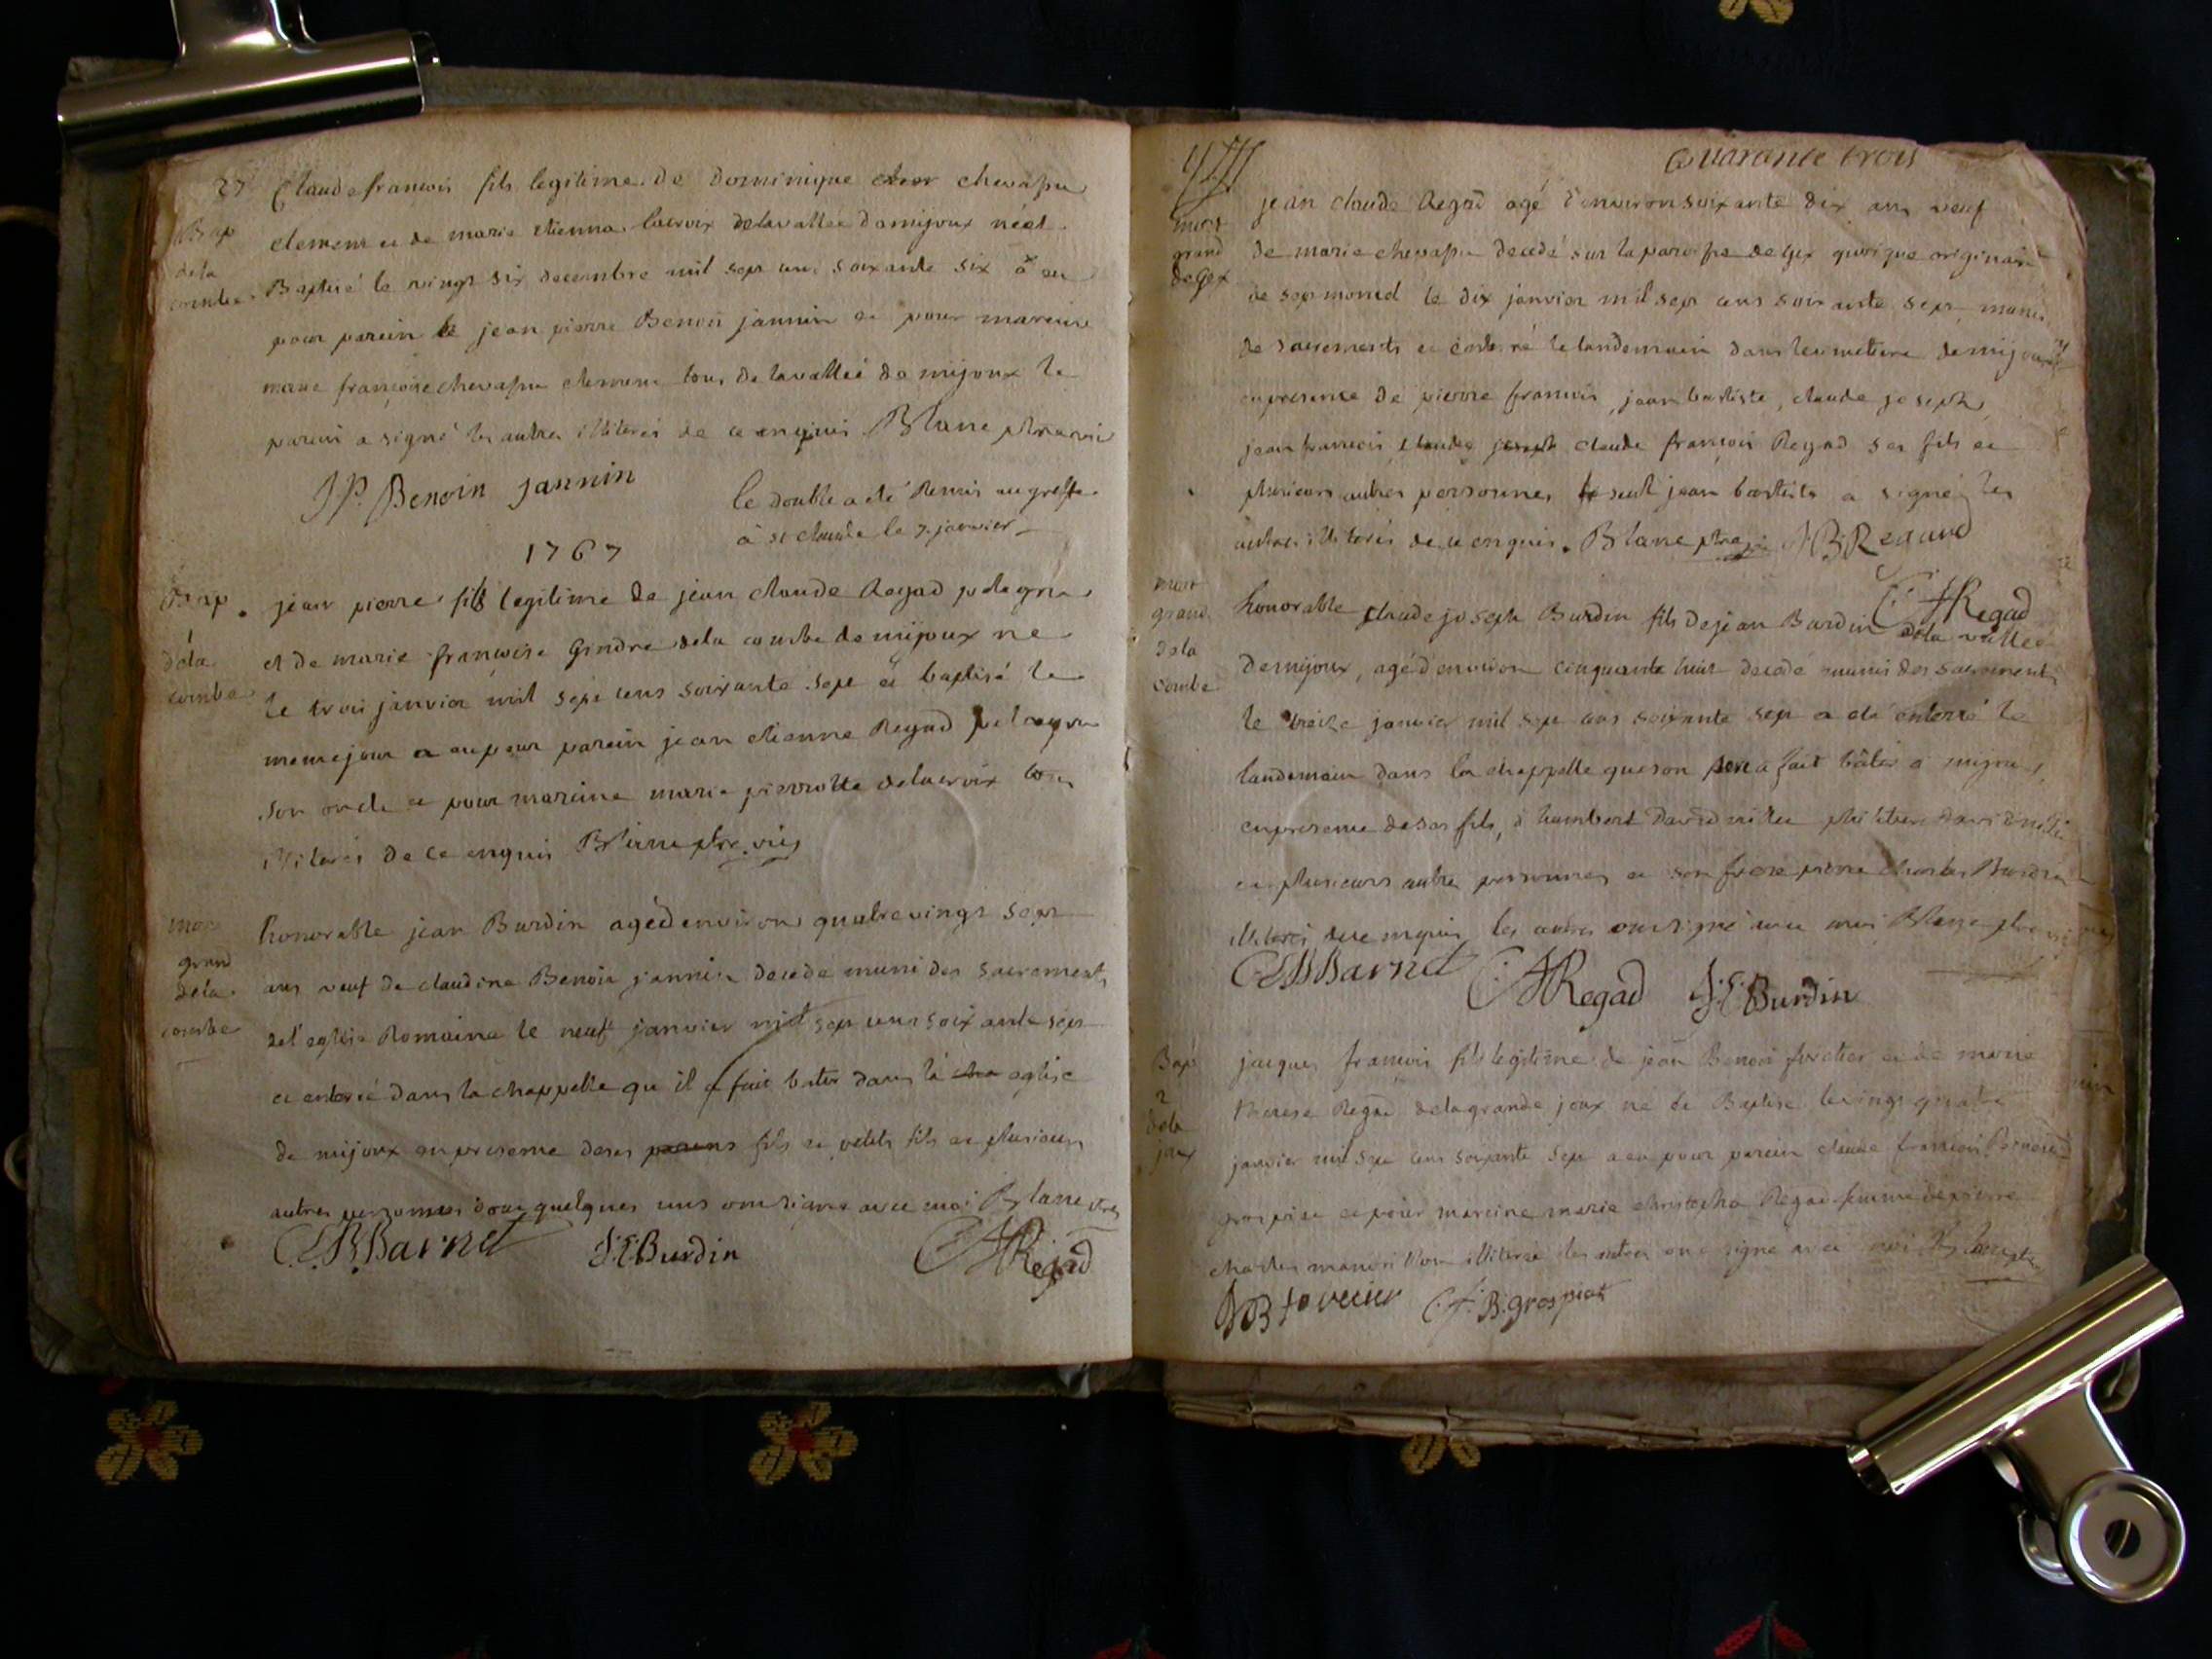 27 Claude francois fils legitime de Dominique chevassu
Bap clement et de marie etienna lacroix delavallee de mijoux né et
dela combe Baptisé le vingt six decembre mil sept cens soixante six a eu
pour parein jean pierre Benoit jannin et pour mareine
marie françoise chevassu clement tous de lavalleé de mijoux le
parein a signé les autres illiterés de ce enquis Blanc ptre
J P. Benoin Jannin
le double a été Remis au greffe
à st claude le 7. janvier
1767
Bap jean pierre fils legitime de jean claude Regad
dela et de marie francoise Gindre dela combe de mijoux ne
combe le trois janvier mil sept cens soixante sept et baptisé le
meme jour a eu pour parein jean etienne Regad
son oncle et pour mareine marie pierrotte delacroix tous
illiterés de ce enquis Blanc ptre vic
mort
grand honorable jean Burdin agé denviron quatrevingt sept
dela ans veuf de claudine Benoit jannin decedé muni des sacrements
combe de l'eglise Romaine le neuf janvier mil sept cens soixante sept
et enterré dans la chappelle qu il a fait batir dans la eglise
de mijoux en presence de ses parens fils et petits fils et plusieurs
autres personnes dont quelques uns ont signé avec moi Blanc ptre
Burdin Regad
Quarante trois
mort jean claude Regad agé d'environ soixante dix ans veuf
grand de marie chevassu decedé sur la paroisse de Gex quoique originaire
de Gex de septmoncel le dix janvier mil sept cens soixante sept muni
de sacrements et enterré le landemain dans le cimetiere de mijoux
en presence de pierre francois, jean batiste, claude joseph,
jean francois claude joseph claude françois Regad ses fils et
plusieurs autres personnes le seul jean batiste a signé les
autres illiterés de ce enquis. Blanc ptre J B Regaud
Regad
mort
grand honorable claude joseph Burdin fils de jean Burdin dela vallee
dela de mijoux, agé denviron cinquante huit decedé munis des sacrements
combe le treize janvier mil sept cens soixante sept a eté enterré le
landemain dans la chappelle que son pere a fait bâtir a mijoux,
en presence de ses fils, d humbert David
et plusieurs autres personnes et son frere pierre charles Burdin
illiterés de ce enquis les autres ont signé avec moi Blanc ptre
Regad Burdin
Bap jacques francois fils legitime de jean Benoit et de marie
2 therese Regad dela grande joux né et Baptisé le vingt quatre
dela joux janvier mil sept cens soixante sept a eu pour parein claude francois
grospiron et pour mareine marie christopha Regad femme de pierre
charles illiterée les autres ont signé avec moi Blanc ptre
C. f. B. grospiat